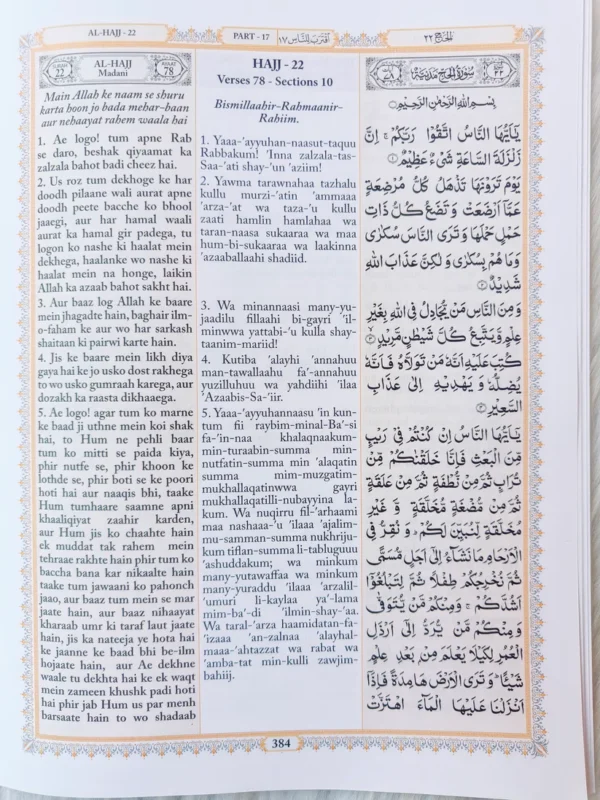 AL-HAJJ - 22
PART - 17 اقترب للناس ١٧
الحج ٢٢
SURAH
22
AL-HAJJ
Madani
AYAAT
78
Main Allah ke naam se shuru
karta hoon jo bada mehar-baan
aur nehaayat rahem waala hai
1. Ae logo! tum apne Rab
se daro, beshak qiyaamat ka
zalzala bahot badi cheez hai.
2. Us roz tum dekhoge ke har
doodh pilaane wali aurat apne
doodh peete bacche ko bhool
jaaegi, aur har hamal waali
aurat ka hamal gir padega, tu
logon ko nashe ki haalat mein
dekhega, haalanke wo nashe ki
haalat mein na honge, laikin
Allah ka azaab bahot sakht hai.
3. Aur baaz log Allah ke baare
mein jhagadte hain, baghair ilm-
o-faham ke aur wo har sarkash
shaitaan ki pairwi karte hain.
4. Jis ke baare mein likh diya
gaya hai ke jo usko dost rakhega
to wo usko gumraah karega, aur
dozakh ka raasta dikhaaega.
5. Ae logo! agar tum ko marne
ke baad ji uthne mein koi shak
hai, to Hum ne pehli baar
tum ko mitti se paida kiya,
phir nutfe se, phir khoon ke
lothde se, phir boti se ke poori
hoti hai aur naaqis bhi, taake
Hum tumhaare saamne apni
khaaliqiyat zaahir karden,
aur Hum jis ko chaahte hain
ek muddat tak rahem mein
tehraae rakhte hain phir tum ko
baccha bana kar nikaalte hain
taake tum jawaani ko pahonch
jaao, aur baaz tum mein se mar
jaate hain, aur baaz nihaayat
kharaab umr ki taraf laut jaate
hain, jis ka nateeja ye hota hai
ke jaanne ke baad bhi be-ilm
hojaate hain, aur Ae dekhne
waale tu dekhta hai ke ek waqt
mein zameen khushk padi hoti
hai phir jab Hum us par menh
barsaate hain to wo shadaab
HAJJ - 22
Verses 78 - Sections 10
Bismillaahir-Rahmaanir-
Rahiim.
1. Yaaa-'ayyuhan-naasut-taquu
Rabbakum! 'Inna zalzala-tas-
Saa-'ati shay-'un 'aziim!
2. Yawma tarawnahaa tazhalu
kullu murzi-'atin 'ammaaa
'arza-'at wa taza-'u kullu
zaati hamlin hamlahaa wa
taran-naasa sukaaraa wa maa
hum-bi-sukaaraa wa laakinna
'azaaballaahi shadiid.
3. Wa minannaasi many-yu-
jaadilu fillaahi bi-gayri 'il-
minwwa yattabi-'u kulla shay-
taanim-mariid!
4. Kutiba 'alayhi 'annahuu
man-tawallaahu fa-'annahuu
yuzilluhuu wa yahdiihi 'ilaa
'Azaabis-Sa-'iir.
5. Yaaa-'ayyuhannaasu 'in kun-
tum fii raybim-minal-Ba'-si
fa-'in-naa khalaqnaakum-
min-turaabin-summa min-
nutfatin-summa min 'alaqatin
summa mim-muzgatim-
mukhallaqatinwwa gayri
mukhallaqatilli-nubayyina la-
kum. Wa nuqirru fil-'arhaami
maa nashaaa-'u 'ilaaa 'ajalim-
mu-samman-summa nukhriju-
kum tiflan-summa li-tabluguuu
'ashuddakum; wa minkum
many-yutawaffaa wa minkum
many-yuraddu 'ilaaa 'arzalil-
'umuri li-kaylaa ya'-lama
mim-ba'-di 'ilmin-shay-'aa.
Wa taral-'arza haamidatan-fa-
'izaaa 'an-zalnaa 'alayhal-
maaa-'ahtazzat wa rabat wa
'amba-tat min-kulli zawjim-
bahiij.
سُوْرَةُ الْحَجِّ مَدَنِيَّةٌ
بِسْمِ اللهِ الرَّحْمٰنِ الرَّحِيْمِ
يٰۤاَيُّهَا النَّاسُ اتَّقُوْا رَبَّكُمْ ۚ اِنَّ
زَلْزَلَةَ السَّاعَةِ شَيْءٌ عَظِيْمٌ ۝١
يَوْمَ تَرَوْنَهَا تَذْهَلُ كُلُّ مُرْضِعَةٍ
عَمَّاۤ اَرْضَعَتْ وَ تَضَعُ كُلُّ ذَاتِ
حَمْلٍ حَمْلَهَا وَ تَرَى النَّاسَ سُكٰرٰى
وَمَا هُمْ بِسُكٰرٰى وَ لٰكِنَّ عَذَابَ اللهِ
شَدِيْدٌ ۝٢
وَ مِنَ النَّاسِ مَنْ يُّجَادِلُ فِي اللهِ بِغَيْرِ
عِلْمٍ وَّ يَتَّبِعُ كُلَّ شَيْطٰنٍ مَّرِيْدٍ ۝٣
كُتِبَ عَلَيْهِ اَنَّهٗ مَنْ تَوَلَّاهُ فَاَنَّهٗ
يُضِلُّهٗ وَ يَهْدِيْهِ اِلٰى عَذَابِ
السَّعِيْرِ ۝٤
يٰۤاَيُّهَا النَّاسُ اِنْ كُنْتُمْ فِيْ رَيْبٍ
مِّنَ الْبَعْثِ فَاِنَّا خَلَقْنٰكُمْ مِّنْ
تُرَابٍ ثُمَّ مِنْ نُّطْفَةٍ ثُمَّ مِنْ عَلَقَةٍ
ثُمَّ مِنْ مُّضْغَةٍ مُّخَلَّقَةٍ وَّ غَيْرِ
مُخَلَّقَةٍ لِّنُبَيِّنَ لَكُمْ ؕ وَ نُقِرُّ فِي
الْاَرْحَامِ مَا نَشَآءُ اِلٰۤى اَجَلٍ مُّسَمًّى
ثُمَّ نُخْرِجُكُمْ طِفْلًا ثُمَّ لِتَبْلُغُوْۤا
اَشُدَّكُمْ ۚ وَمِنْكُمْ مَّنْ يُّتَوَفّٰى
وَمِنْكُمْ مَّنْ يُّرَدُّ اِلٰۤى اَرْذَلِ
الْعُمُرِ لِكَيْلَا يَعْلَمَ مِنْۢ بَعْدِ عِلْمٍ
شَيْـًٔا ؕ وَ تَرَى الْاَرْضَ هَامِدَةً فَاِذَاۤ
اَنْزَلْنَا عَلَيْهَا الْمَآءَ اهْتَزَّتْ
384